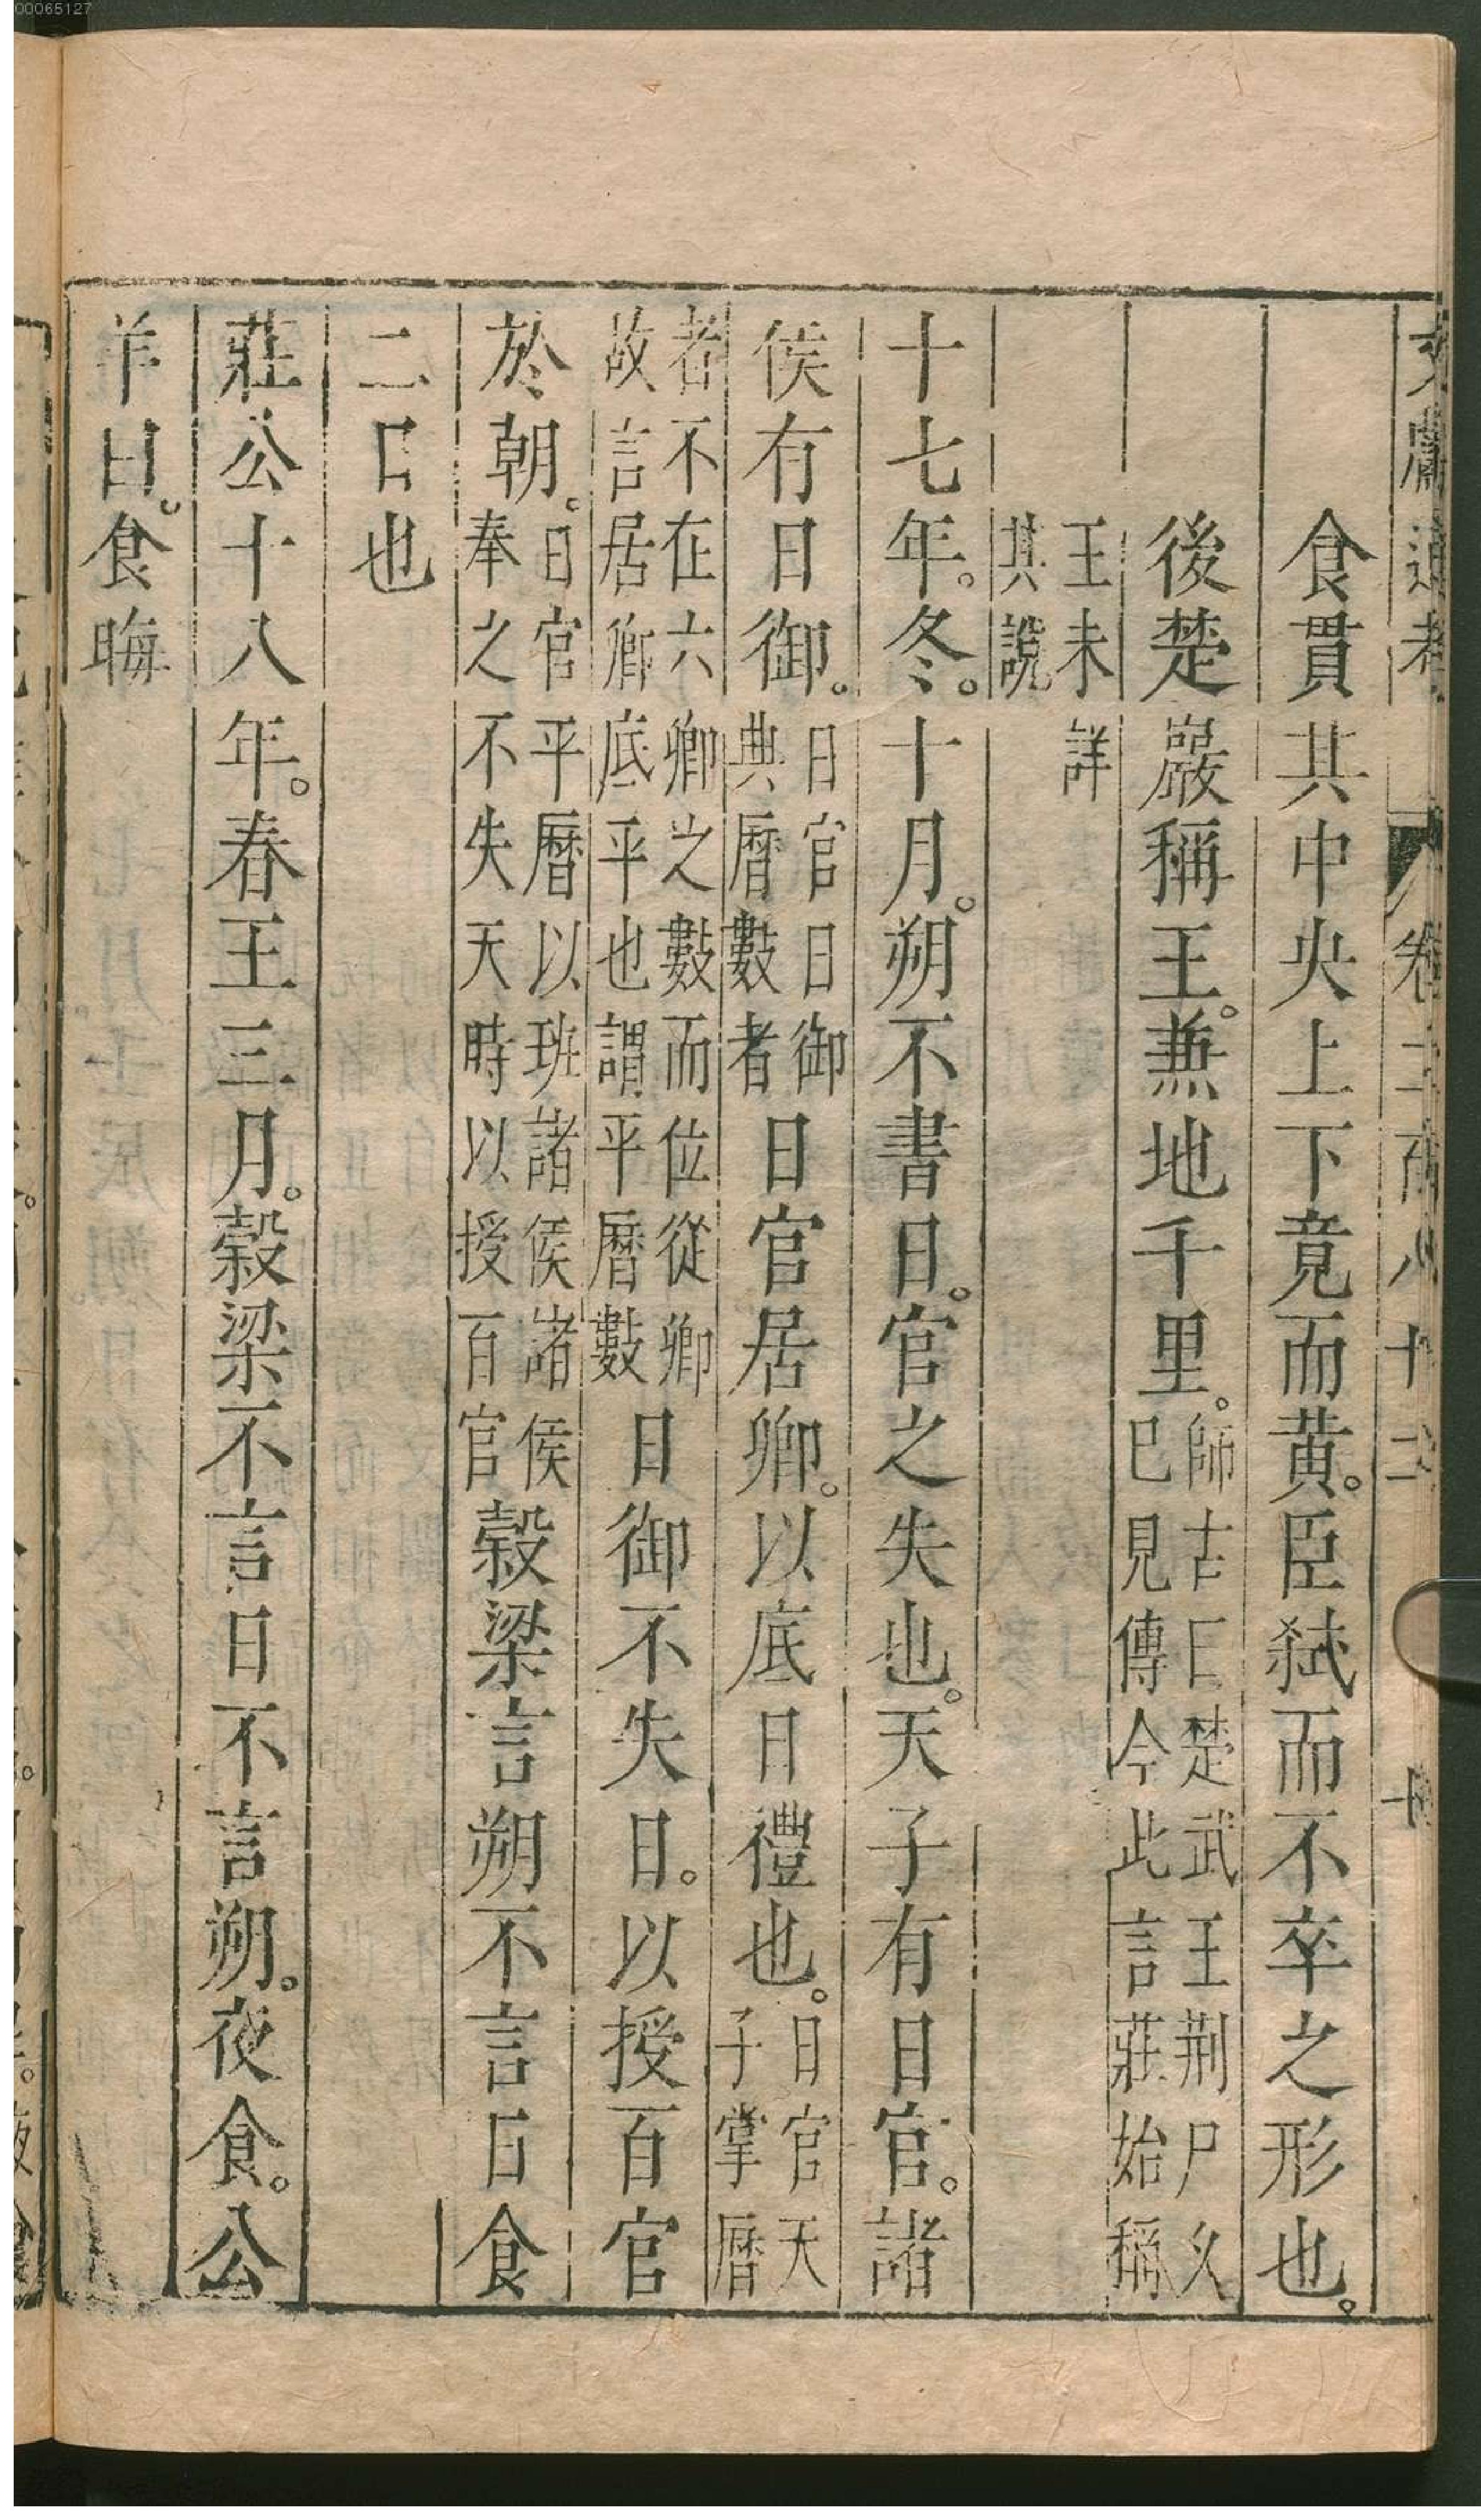 00065127
食貫其中央上下竟而黃。臣弑而不卒之形也。
後楚嚴稱王。兼地千里。師古曰楚武王荆尸久已見傳今此言莊始稱
王未詳其說
十七年。冬。十月。朔不書日。官之失也。天子有日官。諸
侯有日御。日官日御典曆數者日官居卿。以底日禮也。日官天子掌曆
者不在六卿之數而位從卿故言居卿底平也謂平曆數日御不失日。以授百官
於朝。日官平曆以班諸侯諸侯奉之不失天時以授百官穀梁言朔不言日食
二日也
莊公十八年。春王三月。穀梁不言日不言朔。夜食。公
羊曰。食晦